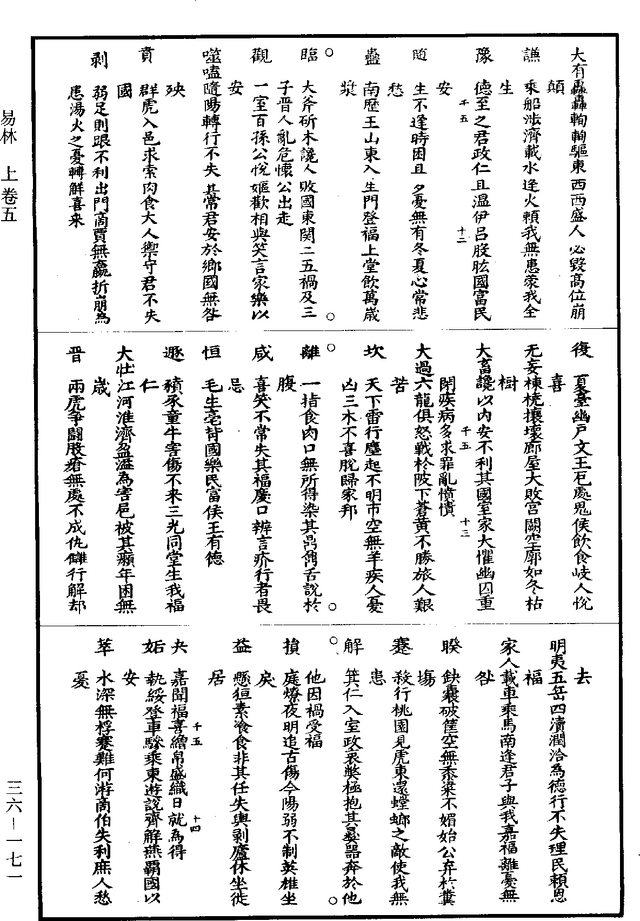 易林 上卷五
三六—一七一
大有轟轟軥軥驅東西西盛人必毀高位崩
顛
謙 乘船涉濟載水逢火賴我無患蒙我全
生
豫 德至之君政仁且溫伊呂股肱國富民
安
千五
十二
隨 生不逢時困且多憂無有冬夏心常悲
愁
蠱 南歷王山東入生門登福上堂飲萬歲
漿
臨 大斧斫木讒人敗國東関二五禍及三
子晉人亂危懷公出走
觀 一室百孫公悅嫗歡相與笑言家樂以
安
噬嗑隨陽轉行不失其常君安於鄉國無咎
殃
賁 群虎入邑求索肉食大人禦守君不失
國
剥 弱足刖跟不利出門商賈無贏折崩為
患湯火之憂轉解喜來
復 夏臺幽戶文王厄處鬼侯飲食岐人悅
喜
无妄棟橈榱壞廊屋大敗宮闕空廓如冬枯
樹
大畜讒以內安不利其國室家大懼幽囚重
閉疾病多求罪亂憒憒
千五
十三
大過六龍俱怒戰於陂下蒼黃不勝旅人艱
苦
坎 天下雷行塵起不明市空無羊疾人憂
凶三木不喜脫歸家邦
離 一指食肉口無所得染其鼎鼐舌說於
腹
咸 喜笑不常失其福慶口辨言疥行者畏
忌
恒 毛生亳背國樂民富侯王有德
遯 積承童牛害傷不來三光同堂生我福
仁
大壯江河淮濟盈溢為害邑被其癩年困無
歲
晋 兩虎爭鬬股瘡無處不成仇讎行解却
去
明夷五岳四瀆潤洽為德行不失理民賴恩
福
家人載車乘馬南逢君子與我嘉福離憂無
咎
睽 鈌囊破筐空無黍粱不媚始公弃於糞
塲
蹇 殺行桃園見虎東還螳螂之敵使我無
患
解 箕仁入室政衰弊極抱其彝器奔於他
他因禍受福
損 庭燎夜明追古傷今陽弱不制英雄坐
戾
益 懸狟素飡食非其任失輿剥廬休坐徙
居
夬 嘉聞福喜繒帛盛織日就為得
千五
十四
姤 執綏登車驂乘東遊說齊解燕霸國以
安
萃 水深無桴蹇難何游商伯失利庶人愁
憂